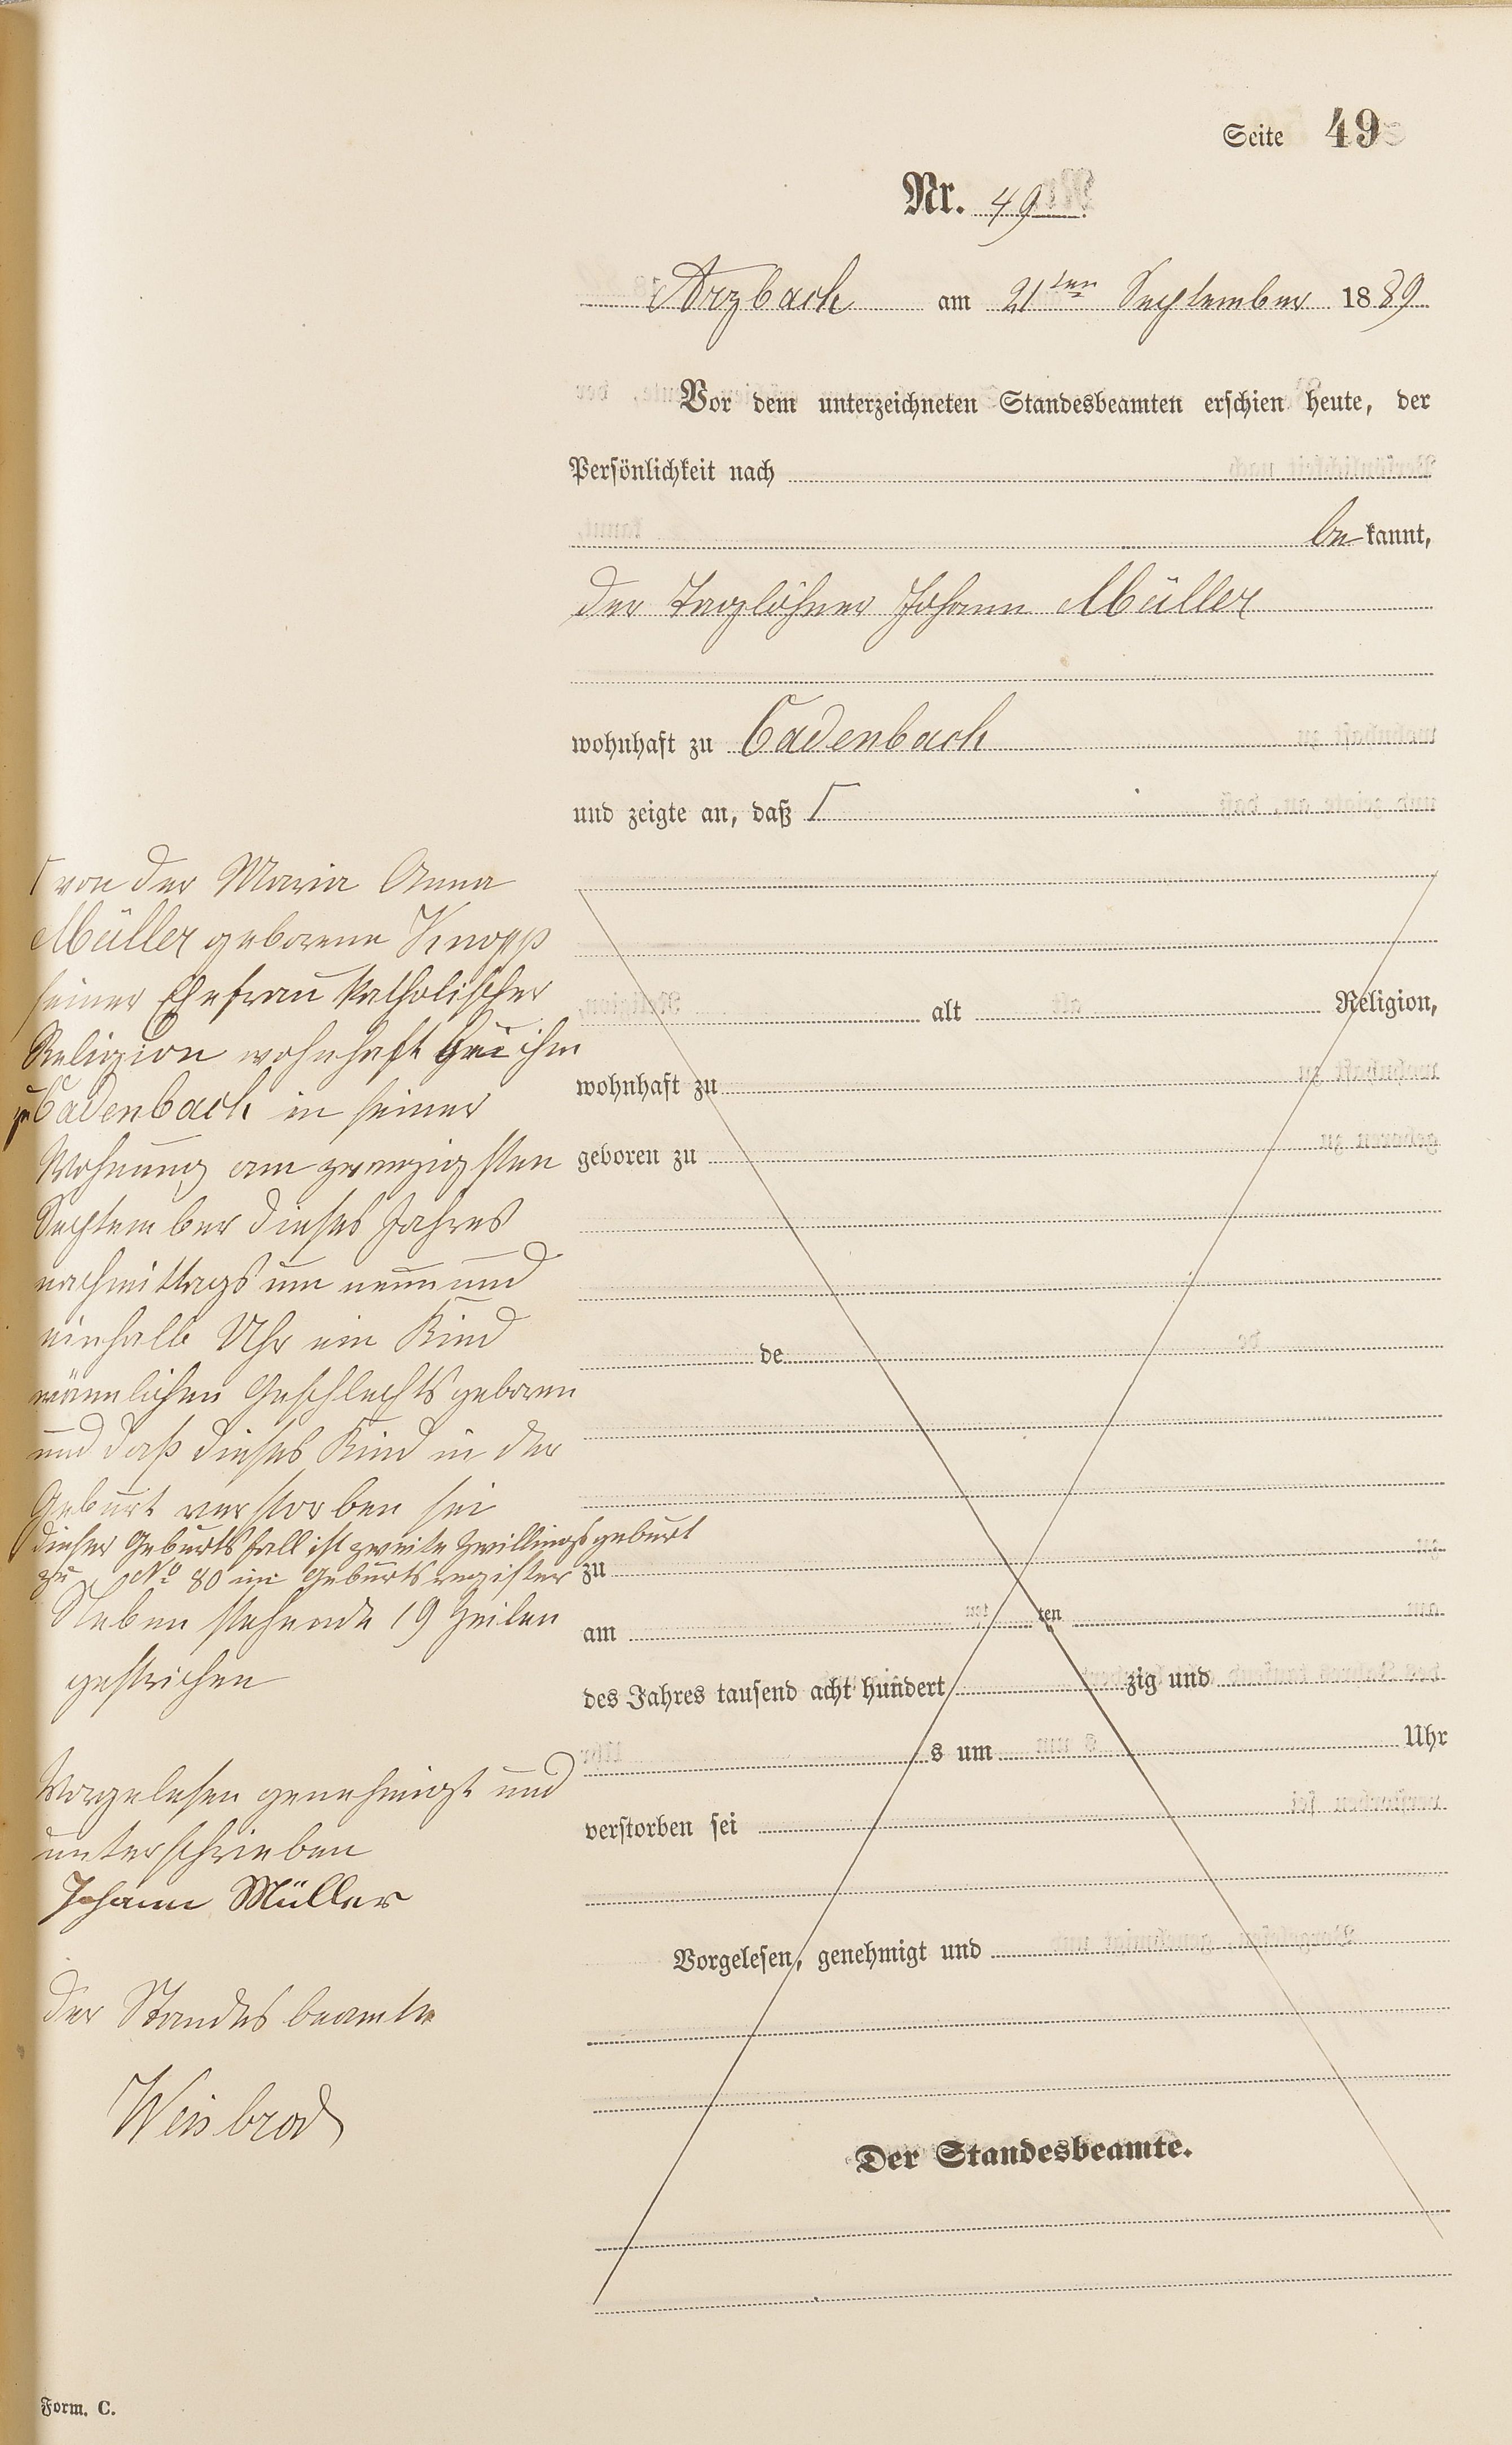 Seite 49
Nr. 49
Arzbach am 21ten September 1889
Vor dem unterzeichneten Standesbeamten erschien heute, der
Persönlichkeit nach
bekannt,
der Taglöhner Johann Müller
wohnhaft zu Cadenbach
und zeigte an, daß Γ
Γ von der Maria Anna
Müller geborene Knopp
seiner Ehefrau katholischer
Religion wohnhaft bei ihm
zu Cadenbach in seiner
Wohnung am zwanzigsten
September dieses Jahres
nachmittags um neun und
einhalb Uhr ein Kind
männlichen Geschlechts geboren
und daß dieses Kind in der
Geburt verstorben sei
dieser Geburtsfall ist zweite Zwillingsgeburt
zu No 80 im Geburtsregister
Nebenstehende 19 Zeilen
gestrichen
Vorgelesen genehmigt und
unterschrieben
Johann Müller
Der Standesbeamte
Weisbrod
alt Religion,
wohnhaft zu
geboren zu
de
zu
am ten
des Jahres tausend acht hundert zig und
s um Uhr
verstorben sei
Vorgelesen, genehmigt und
Der Standesbeamte.
Form. C.